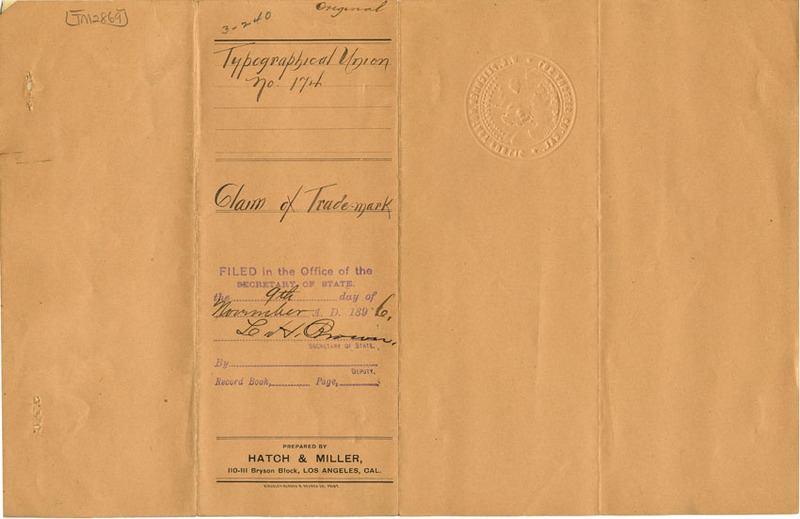 [TM12869]
Original
3-240
Typographical Union
No. 174
Claim of Trade-mark
FILED in the Office of the
SECRETARY OF STATE.
the 9th day of
November A. D. 1896,
L. H. Brown,
SECRETARY OF STATE.
By
DEPUTY.
Record Book, Page,
PREPARED BY
HATCH & MILLER,
110-111 Bryson Block, LOS ANGELES, CAL.